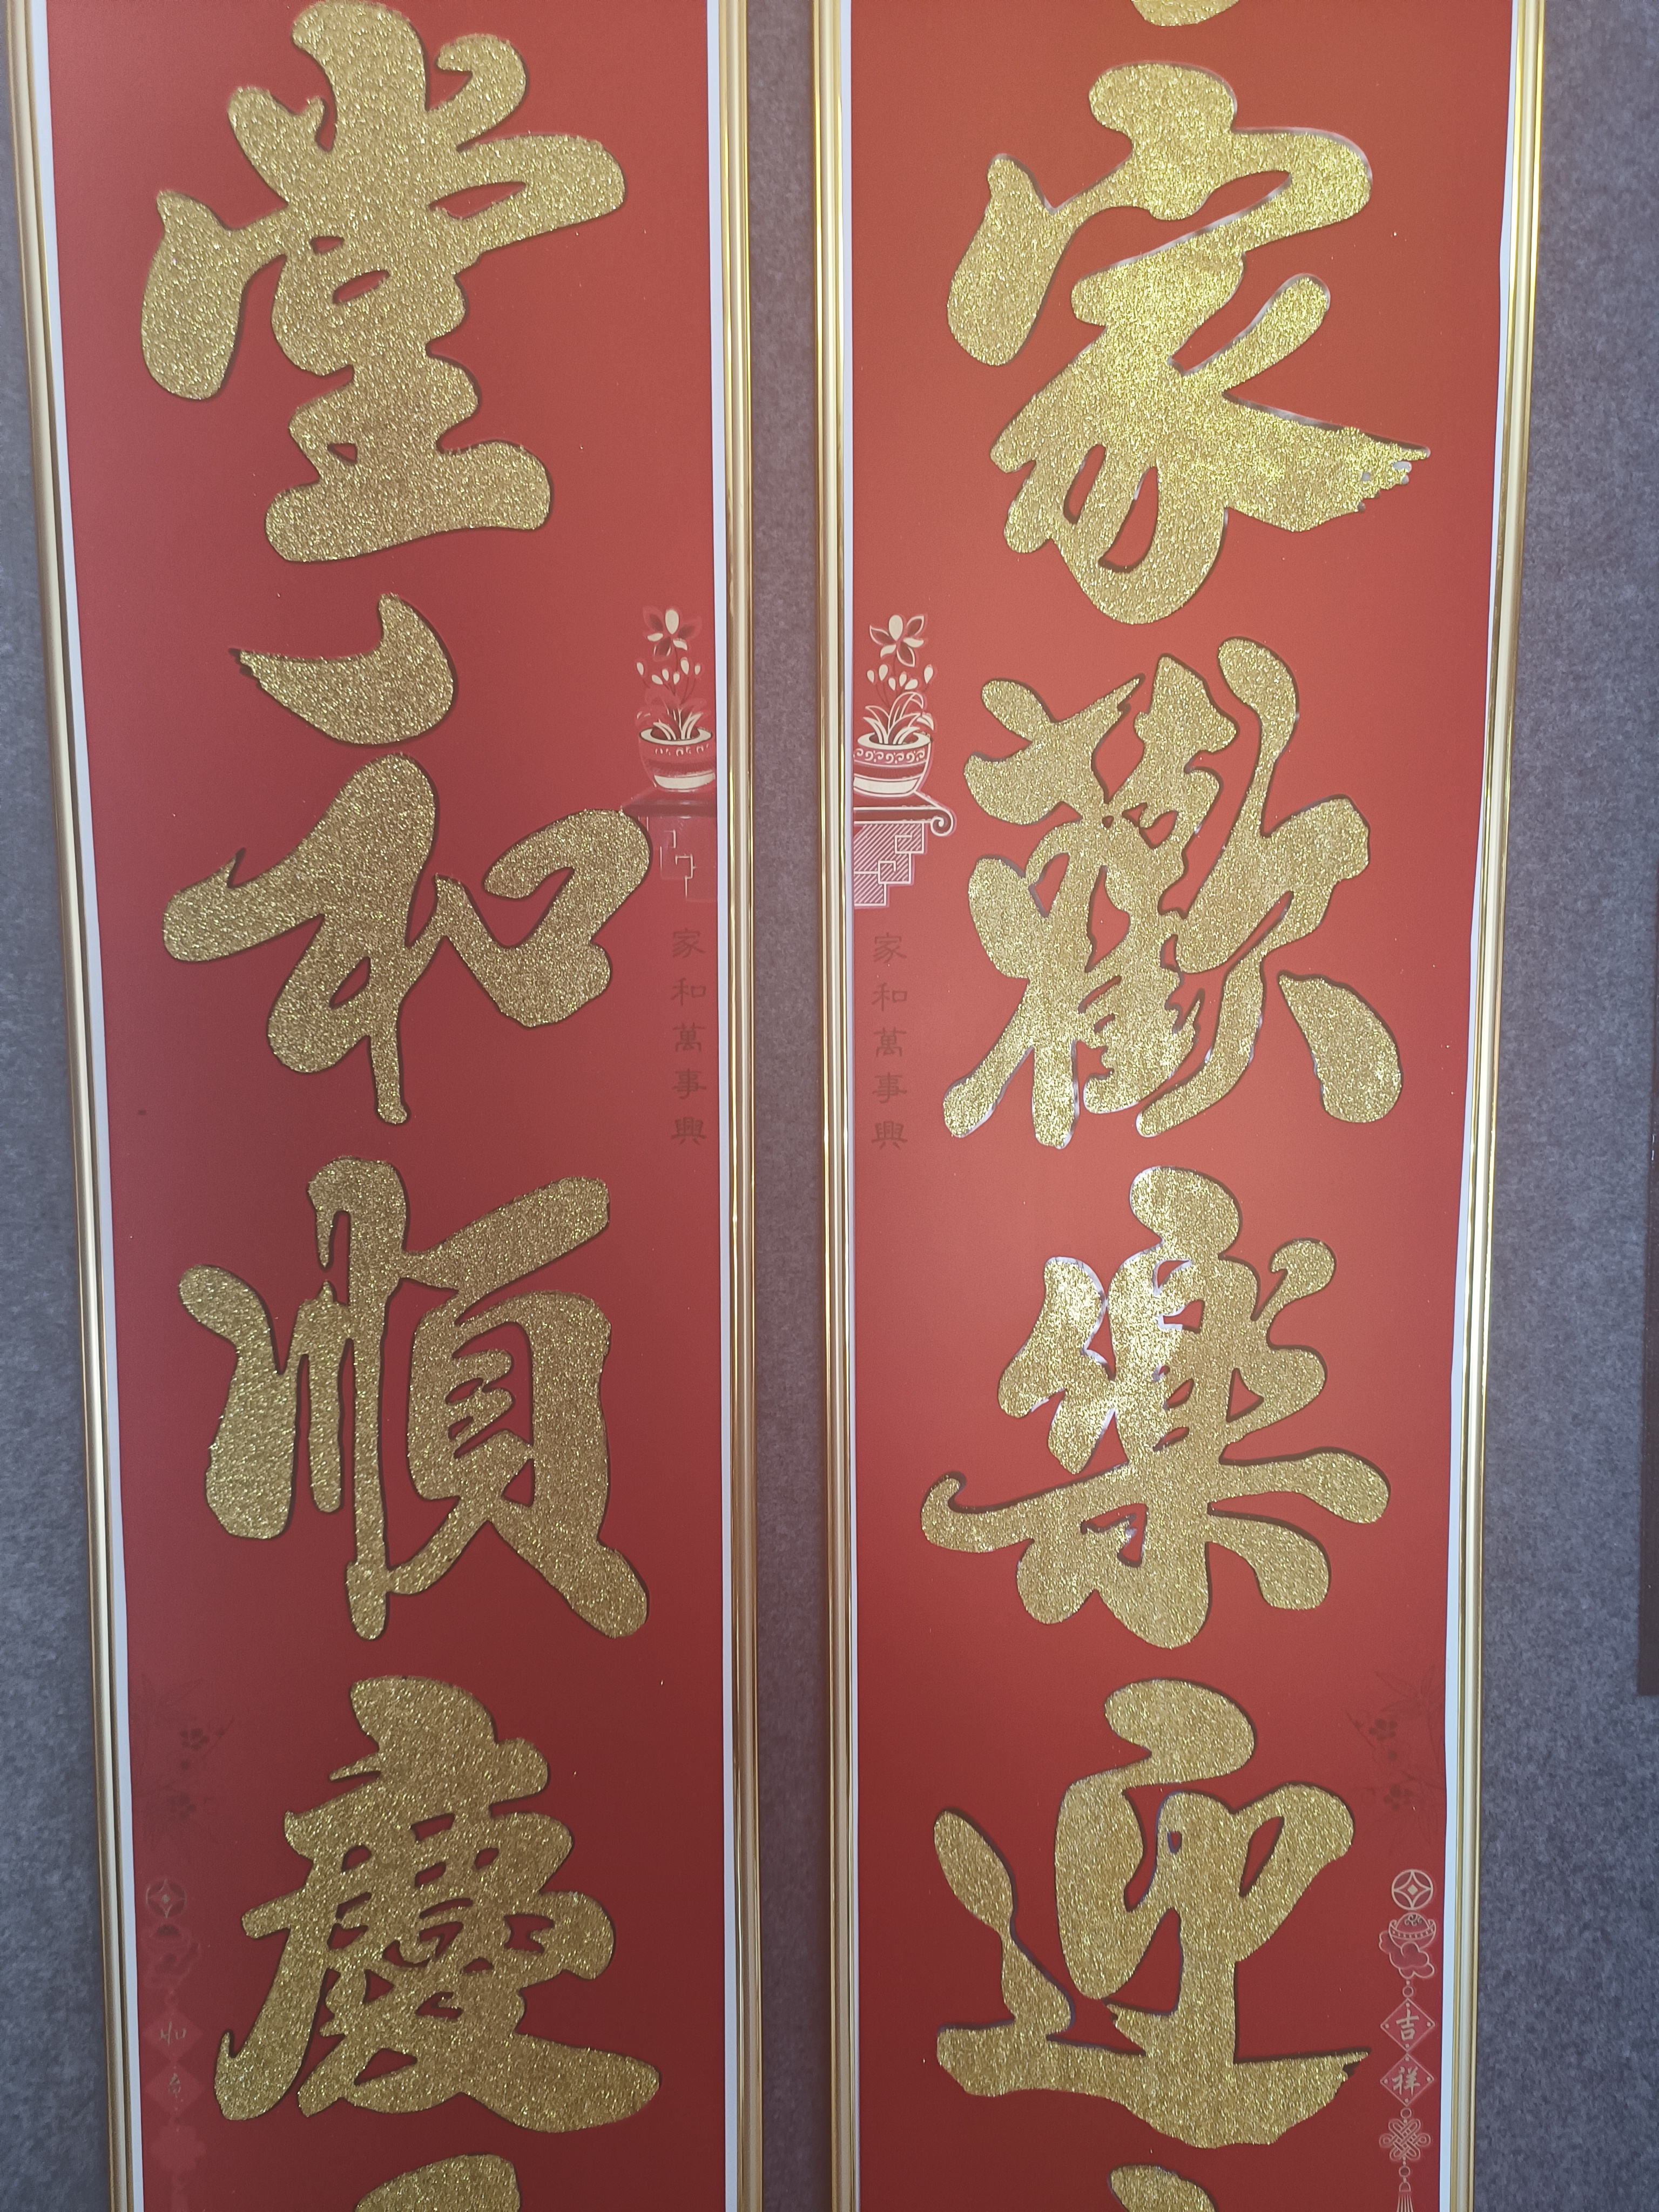 家歡樂迎
家和萬事興
吉祥
堂和順慶
家和萬事興
如意